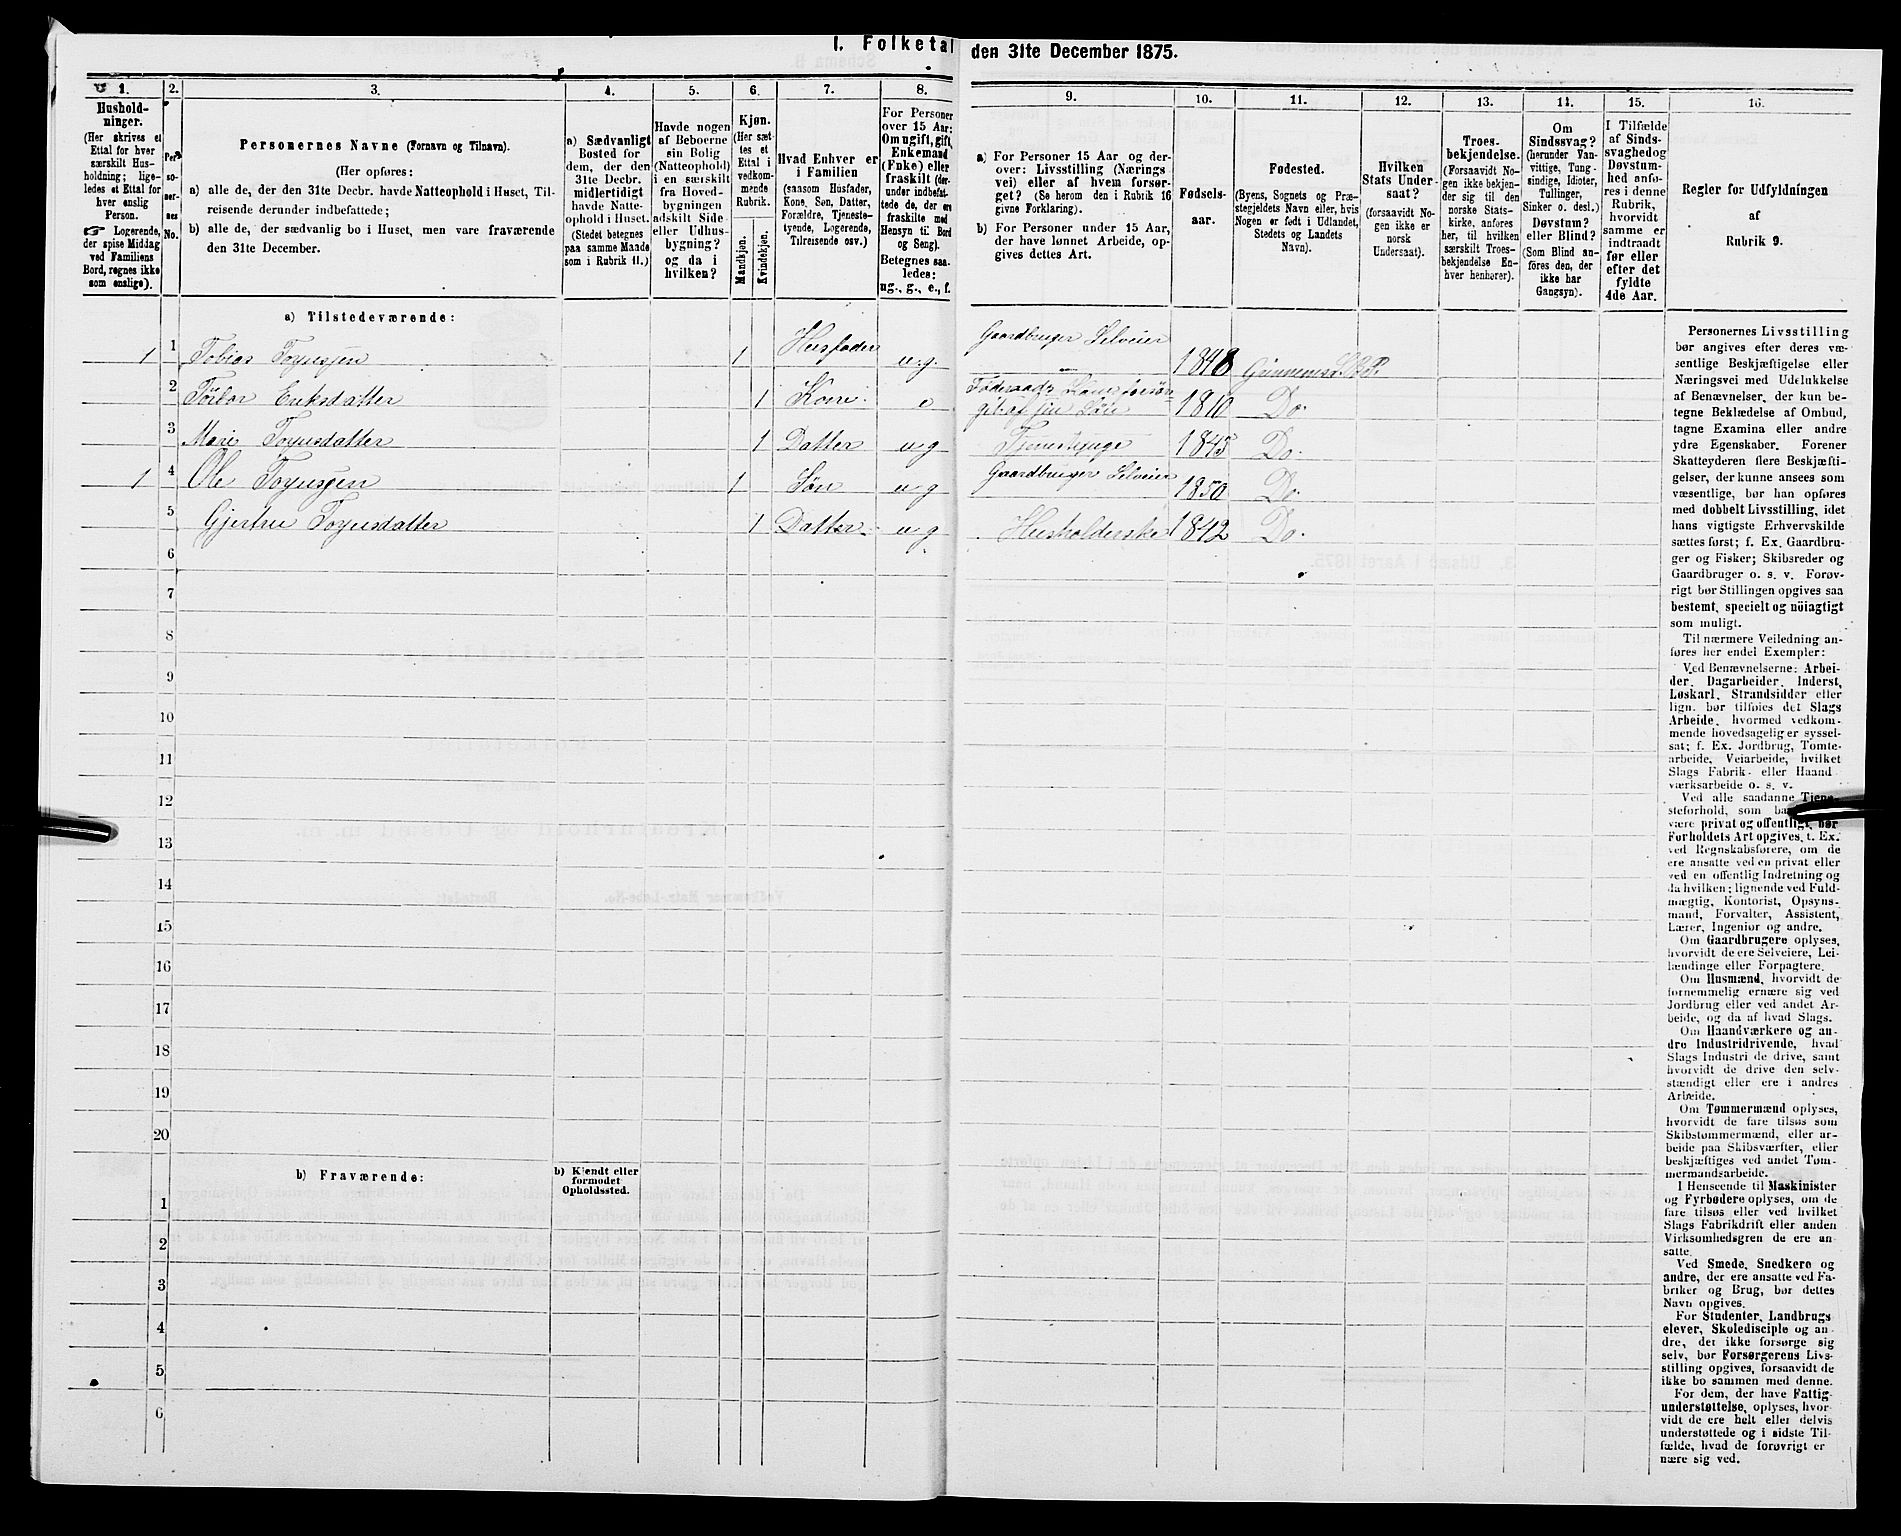 I. Folketal den 31te December 1875.
1.
2.
3.
4.
5.
6.
7.
8.
9.
10.
11.
12.
13.
14.
15.
16.
Hushold-
ninger.
(Her skrives et
Ettal for hver
særskilt Hus-
holdning; lige-
ledes et Ettal for
hver enslig
Person.
☞ Logerende,
der spise Middag
ved Familiens
Bord, regnes ikke
som enslige).
Per-
so-
ner-
nes
No.
Personernes Navne (Fornavn og Tilnavn).
(Her opføres:
a) alle de, der den 31te Decbr. havde Natteophold i Huset, Til-
reisende derunder indbefattede;
b) alle de, der sædvanlig bo i Huset, men vare fraværende
den 31te December.
a) Sædvanligt
Bosted for
dem, der den
31te Decbr.
midlertidigt
havde Natte-
ophold i Huset.
(Stedet betegnes
paa samme Maade
som i Rubrik 11.)
Havde nogen
af Beboerne
sin Bolig
(Natteophold)
i en særskilt
fra Hoved-
bygningen
adskilt Side-
eller Udhus-
bygning?
og da i
hvilken?
Kjøn.
(Her sæt-
tes et
Ettal i
vedkom-
mende
Rubrik.
Mandkjøn.
Kvindekjøn.
Hvad Enhver er
i Familien
(saasom Husfader,
Kone, Søn, Datter,
Forældre, Tjeneste-
tyende, Logerende,
Tilreisende osv.)
For Personer
over 15 Aar:
Om ugift, gift,
Enkemand
(Enke) eller
fraskilt (der-
under indbefat-
tede de, der ere
fraskilte med
Hensyn til Bord
og Seng).
Betegnes saa-
ledes:
ug., g., e., f.
a) For Personer 15 Aar og der-
over: Livsstilling (Nærings-
vei) eller af hvem forsør-
get? (Se herom den i Rubrik 16
givne Forklaring).
b) For Personer under 15 Aar,
der have lønnet Arbeide, op-
gives dettes Art.
Fødsels-
aar.
Fødested.
(Byens, Sognets og Præ-
stegjeldets Navn eller, hvis
Nogen er født i Udlandet,
Stedets og Landets
Navn).
Hvilken
Stats Under-
saat?
(forsaavidt No-
gen ikke er
norsk
Undersaat).
Troes-
bekjendelse.
(Forsaavidt No-
gen ikke bekjen-
der sig til den
norske Stats-
kirke, anføres
her, til hvilken
særskilt Troes-
bekjendelse En-
hver henhører).
Om
Sindssvag?
(herunder Van-
vittige, Tung-
sindige, Idioter,
Tullinger,
Sinker o. desl.)
Døvstum?
eller Blind?
(Som Blind an-
føres den, der
ikke har
Gangsyn).
I Tilfælde
af Sinds-
svaghed og
Døvstum-
hed anfø-
res i denne
Rubrik,
hvorvidt
samme er
indtraadt
før eller
efter det
fyldte
4de Aar.
Regler for Udfyldningen
af
Rubrik 9.
a) Tilstedeværende:
1 1 Tobias Torjusjen 1 Husfader u. g. Gaardbruger Selveier 1848
2 Torbor Eriksdatter 1 Kone e 1810 Do.
3 Mari Torjusdatter 1 Datter u g 1845 Do.
1 4 Ole Torjussen 1 Søn u g Gaardbruger Selveier 1850 Do.
5 Gjertru Torjusdatter 1 Datter u g Husholderske 1842 Do.
6
7
8
9
10
11
12
13
14
15
16
17
18
19
20
b) Fraværende:
b) Kjendt eller
formodet
Opholdssted.
1
2
3
4
5
6
Personernes Livsstilling
bør angives efter deres væ-
sentlige Beskjæftigelse eller
Næringsvei med Udelukkelse
af Benævnelser, der kun be-
tegne Beklædelse af Ombud,
tagne Examina eller andre
ydre Egenskaber. Forener
Skatteyderen flere Beskjæfti-
gelser, der kunne ansees som
væsentlige, bør han opføres
med dobbelt Livsstilling, idet
hans vigtigste Erhvervskilde
sættes først; f. Ex. Gaardbru-
ger og Fisker; Skibsreder og
Gaardbruger o. s. v. Forøv-
rigt bør Stillingen opgives saa
bestemt, specielt og nöiagtigt
som muligt.
Til nærmere Veiledning an-
føres her endel Exempler:
Ved Benævnelserne: Arbei-
der, Dagarbeider, Inderst,
Løskarl, Strandsidder eller
lign. bør tilføies det Slags
Arbeide, hvormed vedkom-
mende hovedsagelig er syssel-
sat; f. Ex. Jordbrug, Tomte-
arbeide, Veiarbeide, hvilket
Slags Fabrik- eller Haand-
værksarbeide o. s. v.
Ved alle saadanne Tjene-
steforhold, som
være privat og offentligt, bør
Forholdets Art opgives, t. Ex.
ved Regnskabsførere, om de
ere ansatte ved en privat eller
ved en offentlig Indretning og
da hvilken; lignende ved Fuld-
mægtig, Kontorist, Opsyns-
mand, Forvalter, Assistent,
Lærer, Ingeniør og andre.
Om Gaardbrugere oplyses,
hvorvidt de ere Selveiere, Lei-
lændinge eller Forpagtere.
Om Husmænd, hvorvidt de
fornemmelig ernære sig ved
Jordbrug eller ved andet Ar-
beide, og da af hvad Slags.
Om Haandværkere og an-
dre Industridrivende, hvad
Slags Industri de drive, samt
hvorvidt de drive den selv-
stændigt eller ere i andres
Arbeide.
Om Tømmermænd oplyses,
hvorvidt de fare tilsøs som
Skibstømmermænd, eller ar-
beide paa Skibsværfter, eller
beskjæftiges ved andet Tøm-
mermandsarbeide.
I Henseende til Maskinister
og Fyrbødere oplyses, om de
fare tilsøs eller ved hvilket
Slags Fabrikdrift eller anden
Virksomhedsgren de ere an-
satte.
Ved Smede, Snedkere og
andre, der ere ansatte ved Fa-
briker og Brug, bør dettes
Navn opgives.
For Studenter, Landbrugs-
elever, Skoledisciple og an-
dre, der ikke forsørge sig
selv, bør Forsørgerens Livs-
stilling opgives, forsaavidt de
ikke bo sammen med denne.
For dem, der have Fattig-
understøttelse, oplyses, hvor-
vidt de ere helt eller delvis
understøttede og i sidste Til-
fælde, hvad de forøvrigt er
nære sig ved.